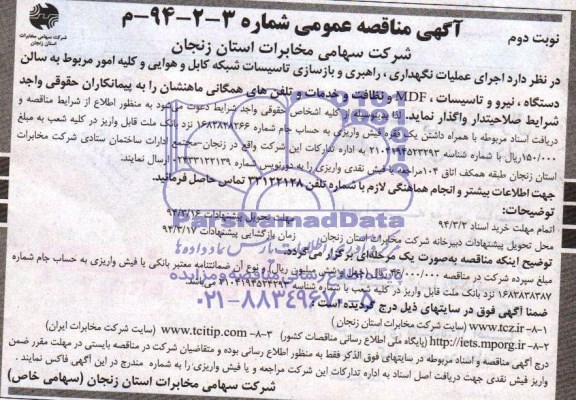 نوبت دوم
آگهی مناقصه عمومی شماره ۳-۲-۹۴-م
شرکت سهامی مخابرات استان زنجان
شرکت سهامی مخابرات
استان زنجان
در نظر دارد اجرای عملیات نگهداری ، راهبری و بازسازی تاسیسات شبکه کابل و هوایی و کلیه امور مربوط به سالن
دستگاه ، نیرو و تاسیسات ، MDF و نظافت و خدمات و تلفن های همگانی ماهنشان را به پیمانکاران حقوقی واجد
شرایط صلاحیتدار واگذار نماید. لذا بدینوسیله از کلیه اشخاص حقوقی واجد شرایط دعوت می‌شود به منظور اطلاع از شرایط مناقصه و
دریافت اسناد مربوطه با همراه داشتن یک فقره فیش واریزی به حساب جام شماره ۱۶۸۳۸۳۸۲۶۶ نزد بانک ملت قابل واریز در کلیه شعب به مبلغ
۱۵۰/۰۰۰ ریال با شماره شناسه ۲۱۰۴۱۹۴۵۲۳۲۹۳ به اداره تدارکات این شرکت واقع در زنجان-مجتمع ادارات ساختمان ستادی شرکت مخابرات
استان زنجان طبقه همکف اتاق ۱۰۴ مراجعه یا فیش نقدی واریزی را به دورنویس شماره ۰۲۴۳۳۱۲۲۱۳۹ ارسال نمایند.
جهت اطلاعات بیشتر و انجام هماهنگی لازم با شماره تلفن ۳۳۱۲۲۱۲۸ تماس حاصل فرمائید.
توضیحات:
اتمام مهلت خرید اسناد ۹۴/۳/۲ مهلت تحویل پیشنهادات ۹۴/۳/۱۶
محل تحویل پیشنهادات دبیرخانه شرکت مخابرات استان زنجان زمان بازگشایی پیشنهادات ۹۴/۳/۱۷
توضیح اینکه مناقصه به‌صورت یک مرحله‌ای برگزار می‌گردد.
مبلغ سپرده شرکت در مناقصه ریال میلیون ریال) و نوع آن ضمانتنامه معتبر بانکی یا فیش واریزی به حساب جام شماره
۱۶۸۳۸۳۸۳۸۷ نزد بانک ملت قابل واریز در کلیه شعب با شماره شناسه می‌باشد.
ضمنا آگهی فوق در سایتهای ذیل درج گردیده است :
۸-۱- www.tcz.ir (سایت شرکت مخابرات استان زنجان )
۸-۲- http://iets.mporg.ir (پایگاه ملی اطلاع رسانی مناقصات کشور) ۸-۳- www.tcitip.com (سایت شرکت مخابرات ایران)
درج آگهی مناقصه و اسناد مربوطه در سایتهای فوق الذکر فقط به منظور اطلاع رسانی بوده و متقاضیان شرکت در مناقصه بایستی در مهلت مقرر ضمن
واریز فیش نقدی جهت دریافت اصل اسناد به اداره تدارکات این شرکت مراجعه و یا فیش واریزی را به شماره مندرج در این آگهی فاکس نمایند .
شرکت سهامی مخابرات استان زنجان (سهامی خاص)
ParsNamadData
پایگاه اطلاع رسانی مناقصه و مزایده
۰۲۱-۸۸۳۴۹۶۷۰-۵